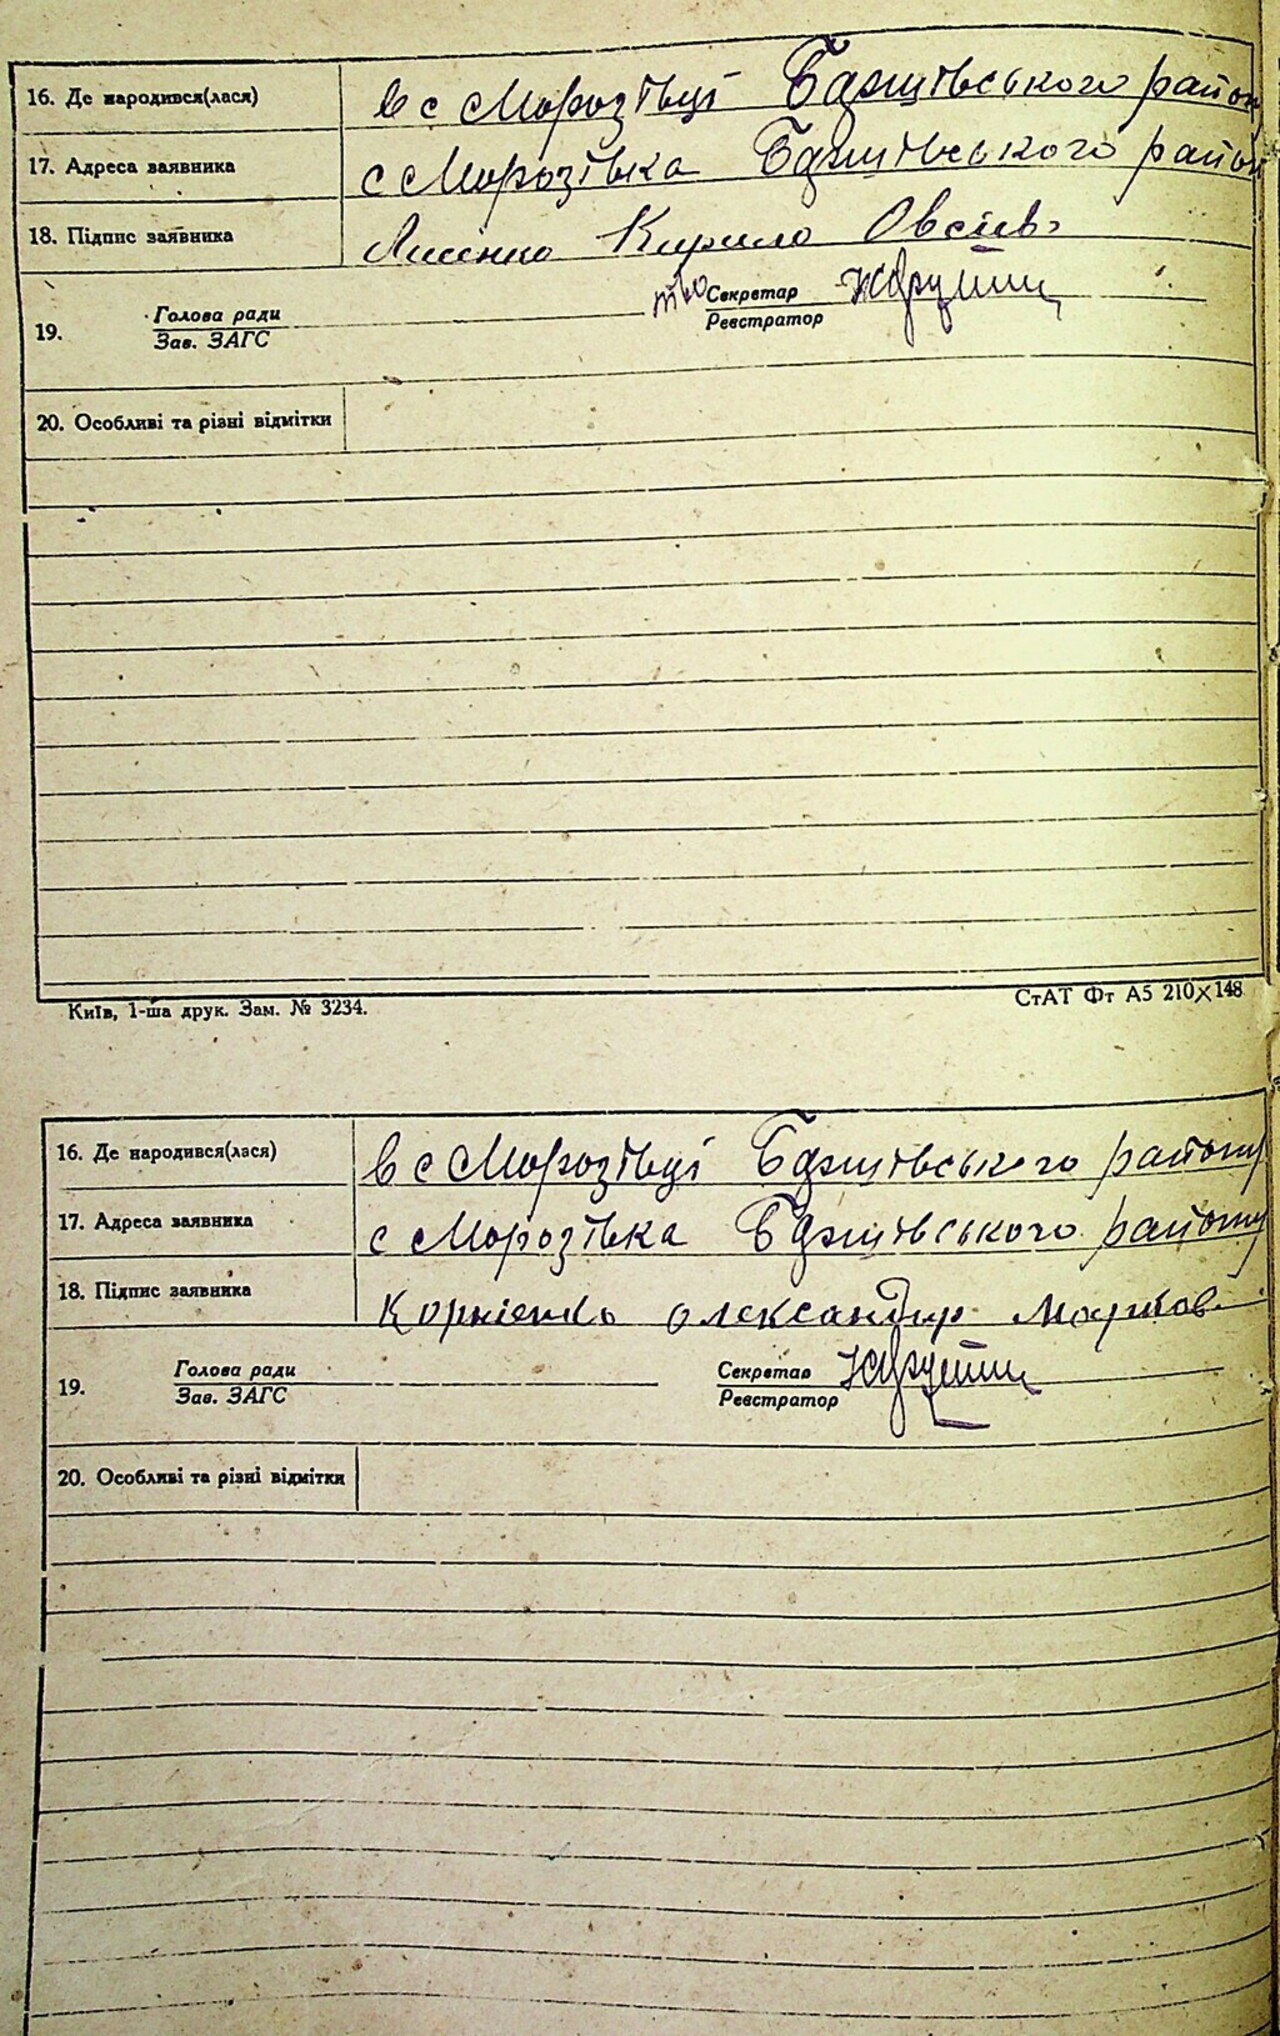 16. Де народився(лася) в с Морозівці Баришівського район
17. Адреса заявника с Морозівка Баришівського район
18. Підпис заявника Лисенко Кирило Овсіїв
19. Голова ради Секретар
Зав. ЗАГС Реєстратор
20. Особливі та різні відмітки
Київ, 1-ша друк. Зам. № 3234. СтАТ Фт А5 210×148
16. Де народився(лася) в с Морозівці Баришівського району
17. Адреса заявника с Морозівка Баришівського району
18. Підпис заявника Корнієнко Олександир Марков
19. Голова ради Секретар
Зав. ЗАГС Реєстратор
20. Особливі та різні відмітки